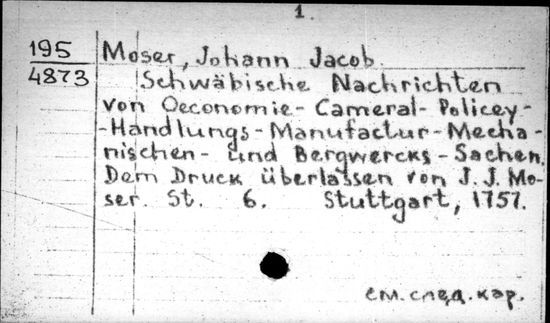 1.
195
4873
Moser, Johann Jacob
Schwäbische Nachrichten
von Oeconomie- Cameral- Policey-
-Handlungs- Manufactur- Mecha-
nischen- und Bergwercks- Sachen.
Dem Druck überlassen von J. J. Mo-
ser. St. 6. Stuttgart, 1757.
см. след. кар.